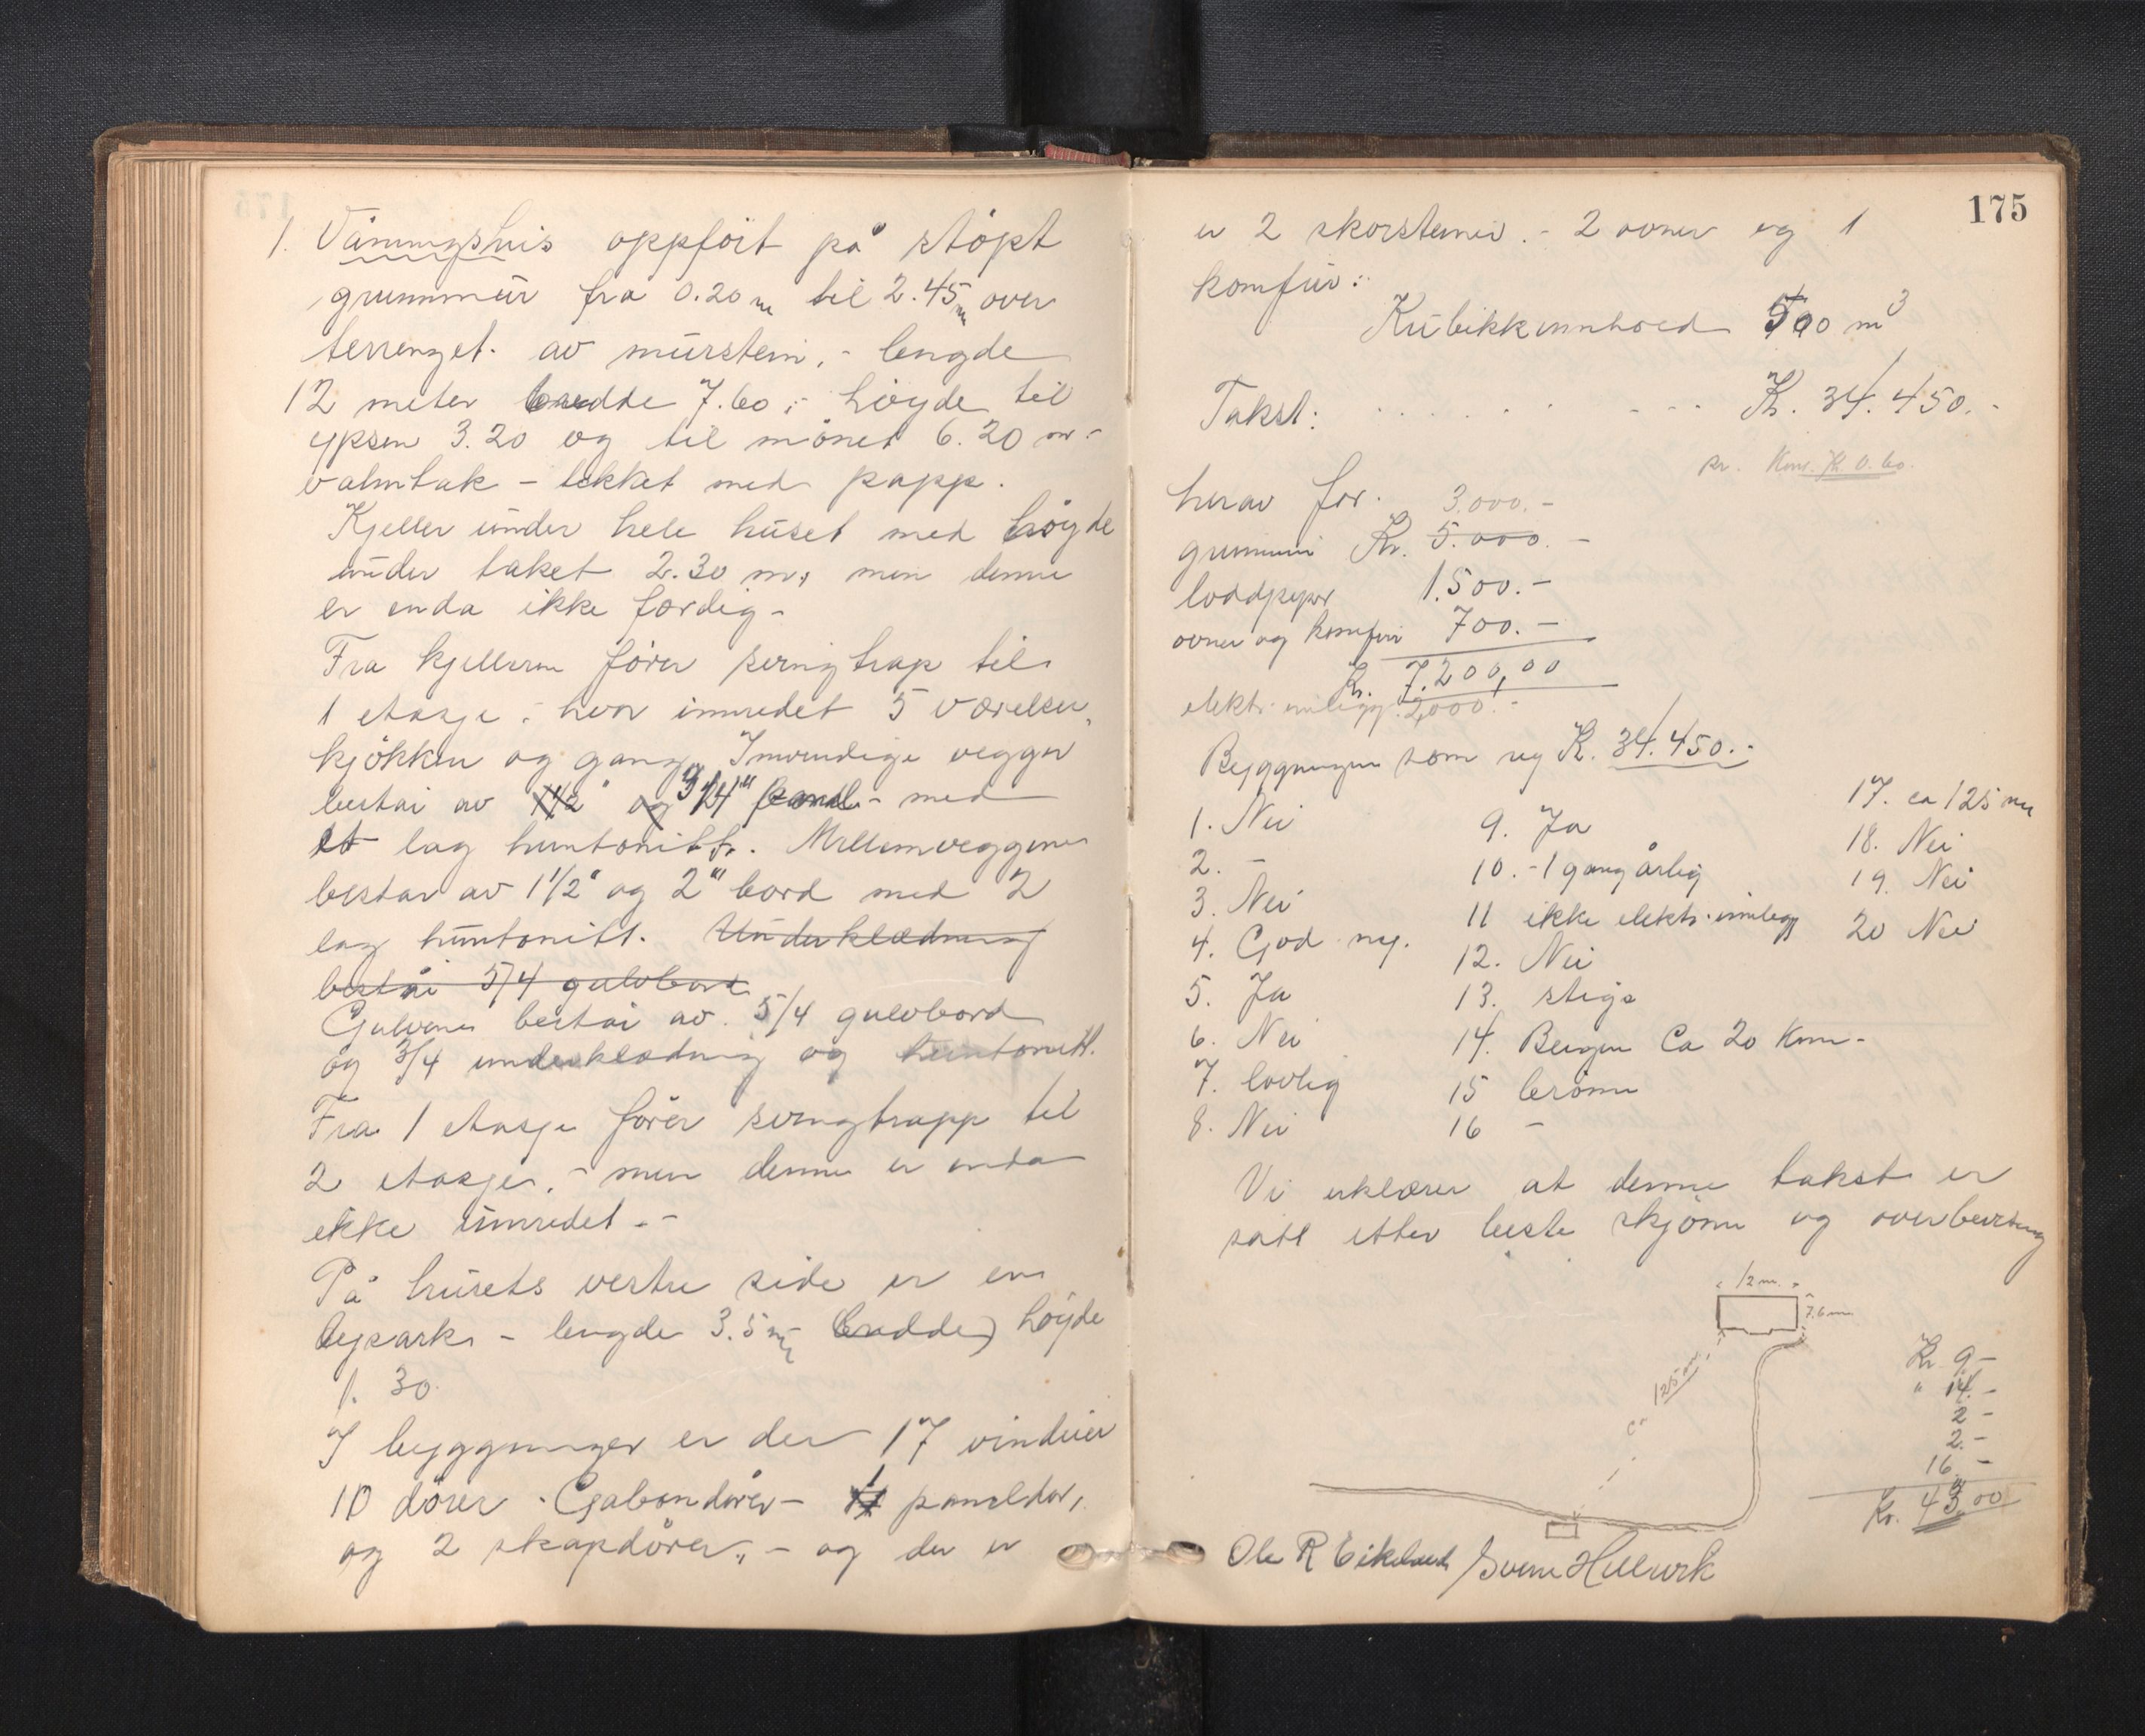 1. Våningshus oppfört på stöpt
grunnmur fra 0.20 m til 2.45 m over
terrenget. av murstein, - lengde
12 meter bredde 7.60; - höyde til
gesen 3.20 og til mönet 6.20 m -
valmtak - tekket med papp.
Kjeller under hele huset med höyde
under taket 2.30 m, men denne
er enda ikke ferdig -
Fra kjelleren förer svingtrap til
1 etasje; hvor innredet 5 værelser,
kjökken og gang. Innvendige vegger
består av 1 1/2" og 3/4" panel - med
et lag huntonitt. Mellemveggene
bestar av 1 1/2" og 2" bord med 2
lag huntonitt. Underklædning
består 5/4 gulvbord
Gulvene består av 5/4 gulvbord
og 3/4 underklædning og huntonitt.
Fra 1 etasje förer svingtrapp til
2 etasje, - men denne er enda
ikke innredet. -
På husets vestre side er en
byark - lengde 3.5 m, bredde) höyde
1. 30
I bygningen er der 17 vinduer
10 dörer - Gabondörer - 1 paneldör,
og 2 skapdörer, - og der er
175
er 2 skorsteiner. - 2 ovner og 1
komfur:
Kubikkinnhold 500 m3
Takst: . . . . . . - - - Kr. 34.450. -
pr. Kr. 0.60.
herav for. 3.000.-
grunnmur Kr. 5.000. -
loddpiper 1.500.-
ovner og komfur 700.-
Kr. 7.200,00
elektr. innlegg. 2,000. -
Byggningen som ny Kr. 34.450.-
1. Nei
2. -
3. Nei
4. God ny.
5. Ja
6. Nei
7. lovlig
8. Nei
9. Ja
10. - 1 gang årlig
11 ikke elektr. innlegg
12. Nei
13. stige
14. Bergen Ca 20 Km -
15 berömm
16 -
17. ca 125 m
18. Nei
19. Nei
20 Nei
Vi erklærer at denne takst er
satt etter beste skjönn og overbevisning
12 m.
7.6 m
ca 125 m
Kr 9 -
" 14. -
2 -
2. -
16 -
Kr. 43.00
Ole R Eikeland Sverre Hillevik